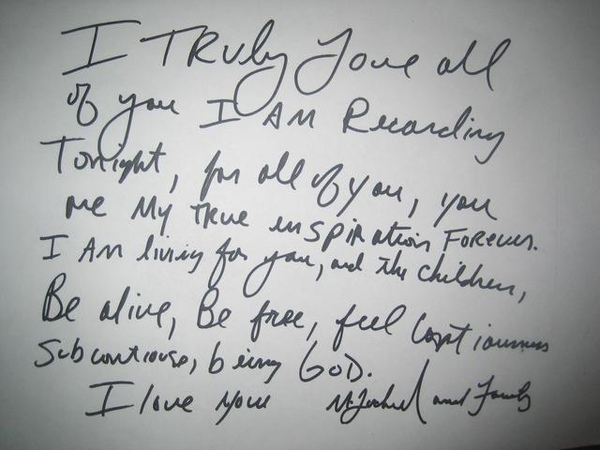 I TRuly love all
of you I AM Recording
Tonight, for all of you, you
are My TRue inspiRation Forever.
I AM living for you, and The children,
Be alive, Be free, feel
being GOD.
I love you and Family